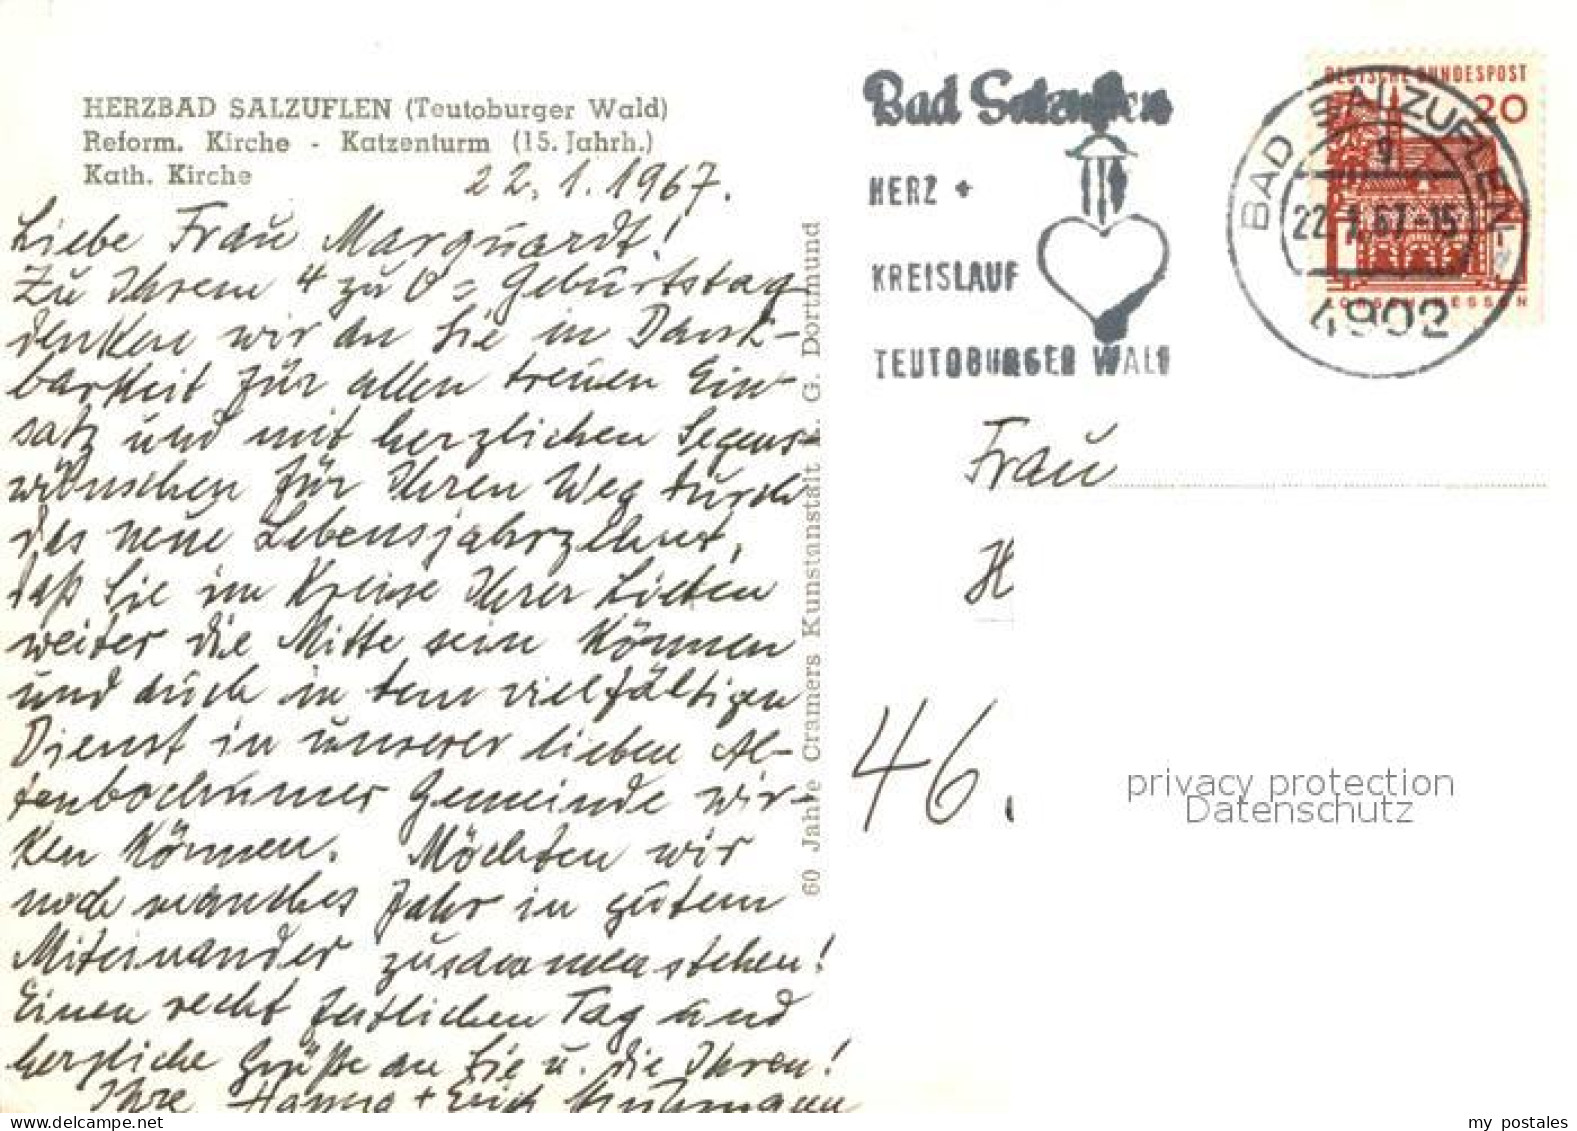 HERZBAD SALZUFLEN (Teutoburger Wald)
Reform. Kirche - Katzenturm (15. Jahrh.)
Kath. Kirche
22.1.1967.
Liebe Frau Marquardt!
Zu Ihrem 4 zu 0 = Geburtstag
denken wir an Sie in Dank-
barkeit für allen treuen Ein-
satz und mit herzlichen Segens-
wünschen für Ihren Weg durch
das neue Lebensjahrzehnt,
daß Sie im Kreise Ihrer Lieben
weiter die Mitte sein können
und auch in dem vielfältigen
Dienst in unserer lieben Al-
tenbochumer Gemeinde wir-
ken können. Möchten wir
noch manches Jahr in gutem
Miteinander zusammenstehen!
Einen recht festlichen Tag und
herzliche Grüße an Sie u. die Ihren!
Ihre Hanna + Erich
60 Jahre Cramers Kunstanstalt K. G. Dortmund
Bad Salzuflen
HERZ +
KREISLAUF
TEUTOBURGER WALD
DEUTSCHE BUNDESPOST
20
LORSCH HESSEN
BAD SALZUFLEN
g
22.1.67-15
4902
Frau
H
46.
privacy protection
Datenschutz
my postales